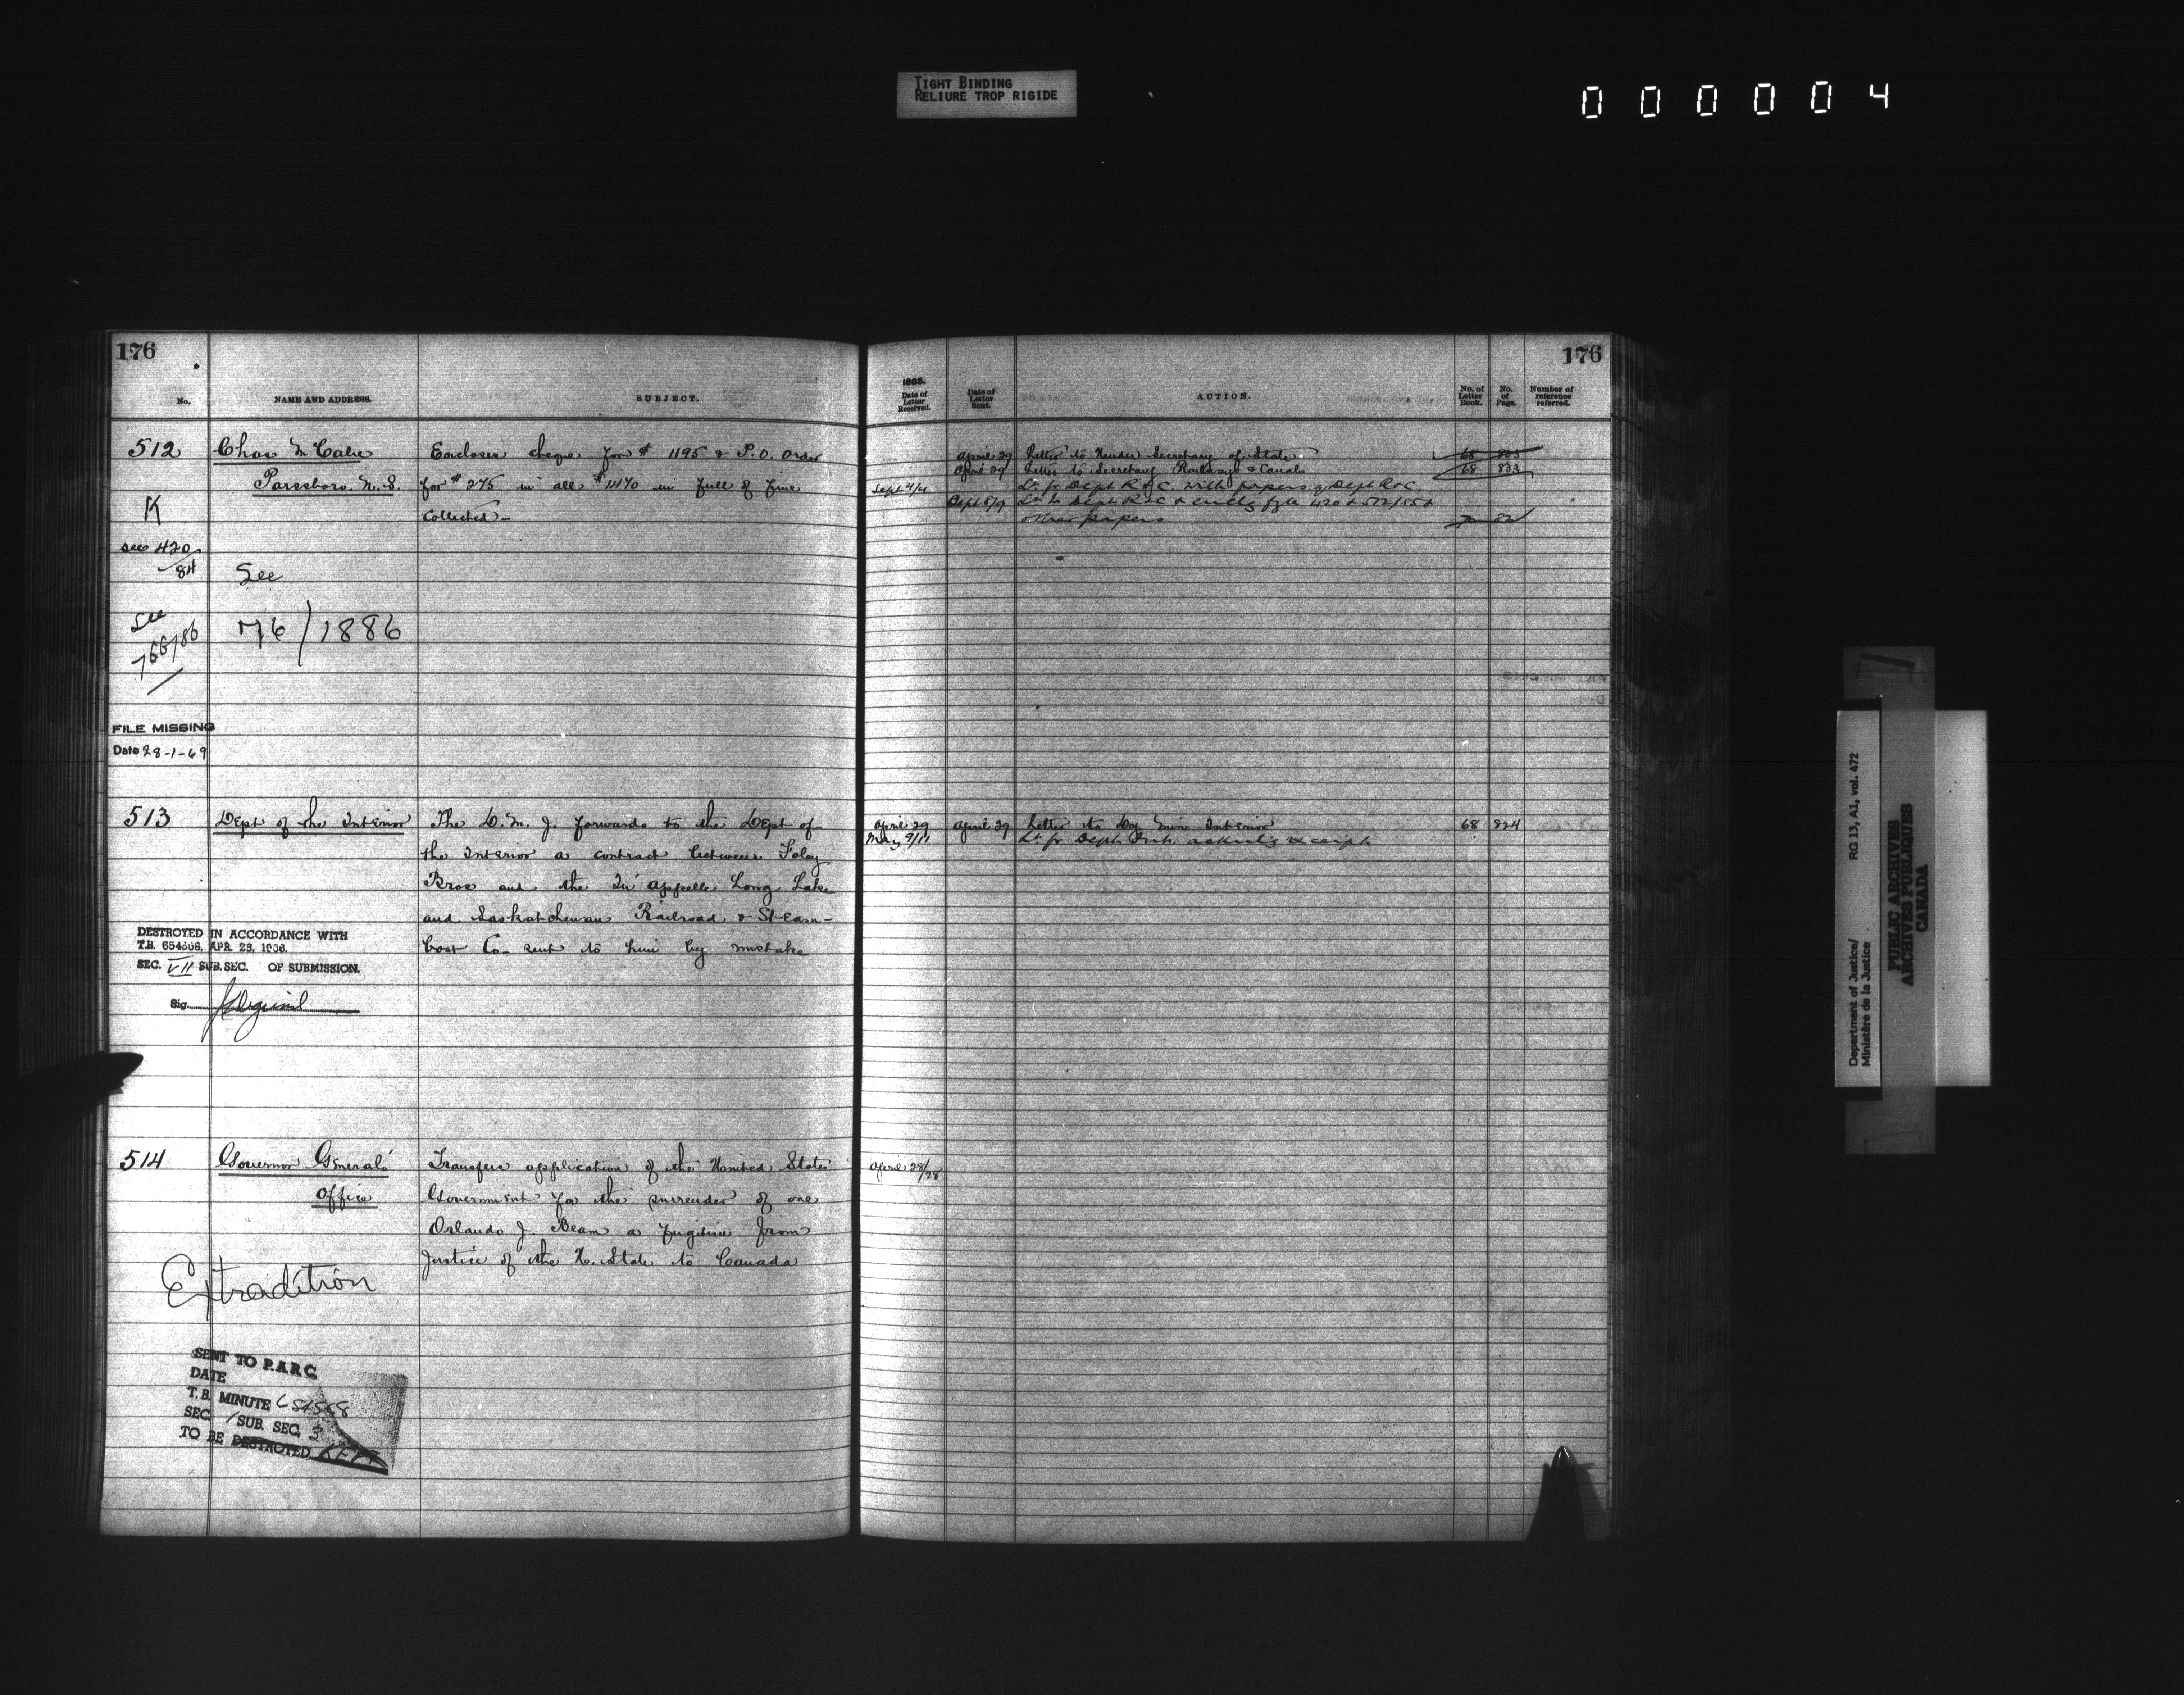 TIGHT BINDING
RELIURE TROP RIGIDE
000004
176
No.
NAME AND ADDRESS.
SUBJECT.
512
Chas McCabe
Encloses cheque for $ 1195 & P.O. Order
Parrsboro N.S.
for $ 275 in all $ 1470 in full of fine
collected-
K
see 420/84
See
76/1886
See
766/86
FILE MISSING
Date 28-1-69
513
Dept of the Interior
The D.M.J. forwards to the Dept of
the Interior a contract between Foley
Bros and the Qu'appelle Long Lake
and Saskatchewan Railroad & Steam-
boat Co- sent to him by mistake
DESTROYED IN ACCORDANCE WITH
T.B. APR. 23,
SEC. VII SUB. SEC. OF SUBMISSION.
Sig.
514
Governor General's
Office
Transfers application of the United States
Government for the surrender of one
Orlando J. Beam a fugitive from
Justice of the U. States to Canada
Extradition
SENT TO P.A.R.C.
DATE
T.B. MINUTE
SEC. 1 SUB. SEC. 3
TO BE DESTROYED KEPT
176
1885.
Date of Letter Received.
Date of Letter Sent.
ACTION.
No. of Letter Book.
No. of Page.
Number of reference referred.
April 29 Letter to Under Secretary of State 68
April 29 Letter to Secretary Railways & Canals 68 833
Sept 4/4 Lr. fr Dept R & C. with papers of Dept R & C.
Sept 8/9 Lr. to Dept R & C & 420 & 512/85 &
other papers
April 29 April 29 Letter to Dy Min Interior 68 824
May 9/11 Lr. fr Dept Int. acknlg receipt
April 28/28
Department of Justice/
Ministère de la Justice
RG 13, A1, vol. 472
PUBLIC ARCHIVES
ARCHIVES PUBLIQUES
CANADA